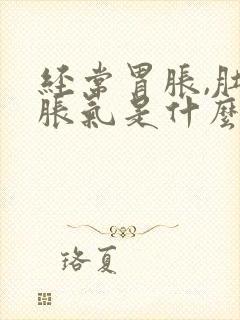 经常胃脹,肚
脹氣是什麼
珞夏